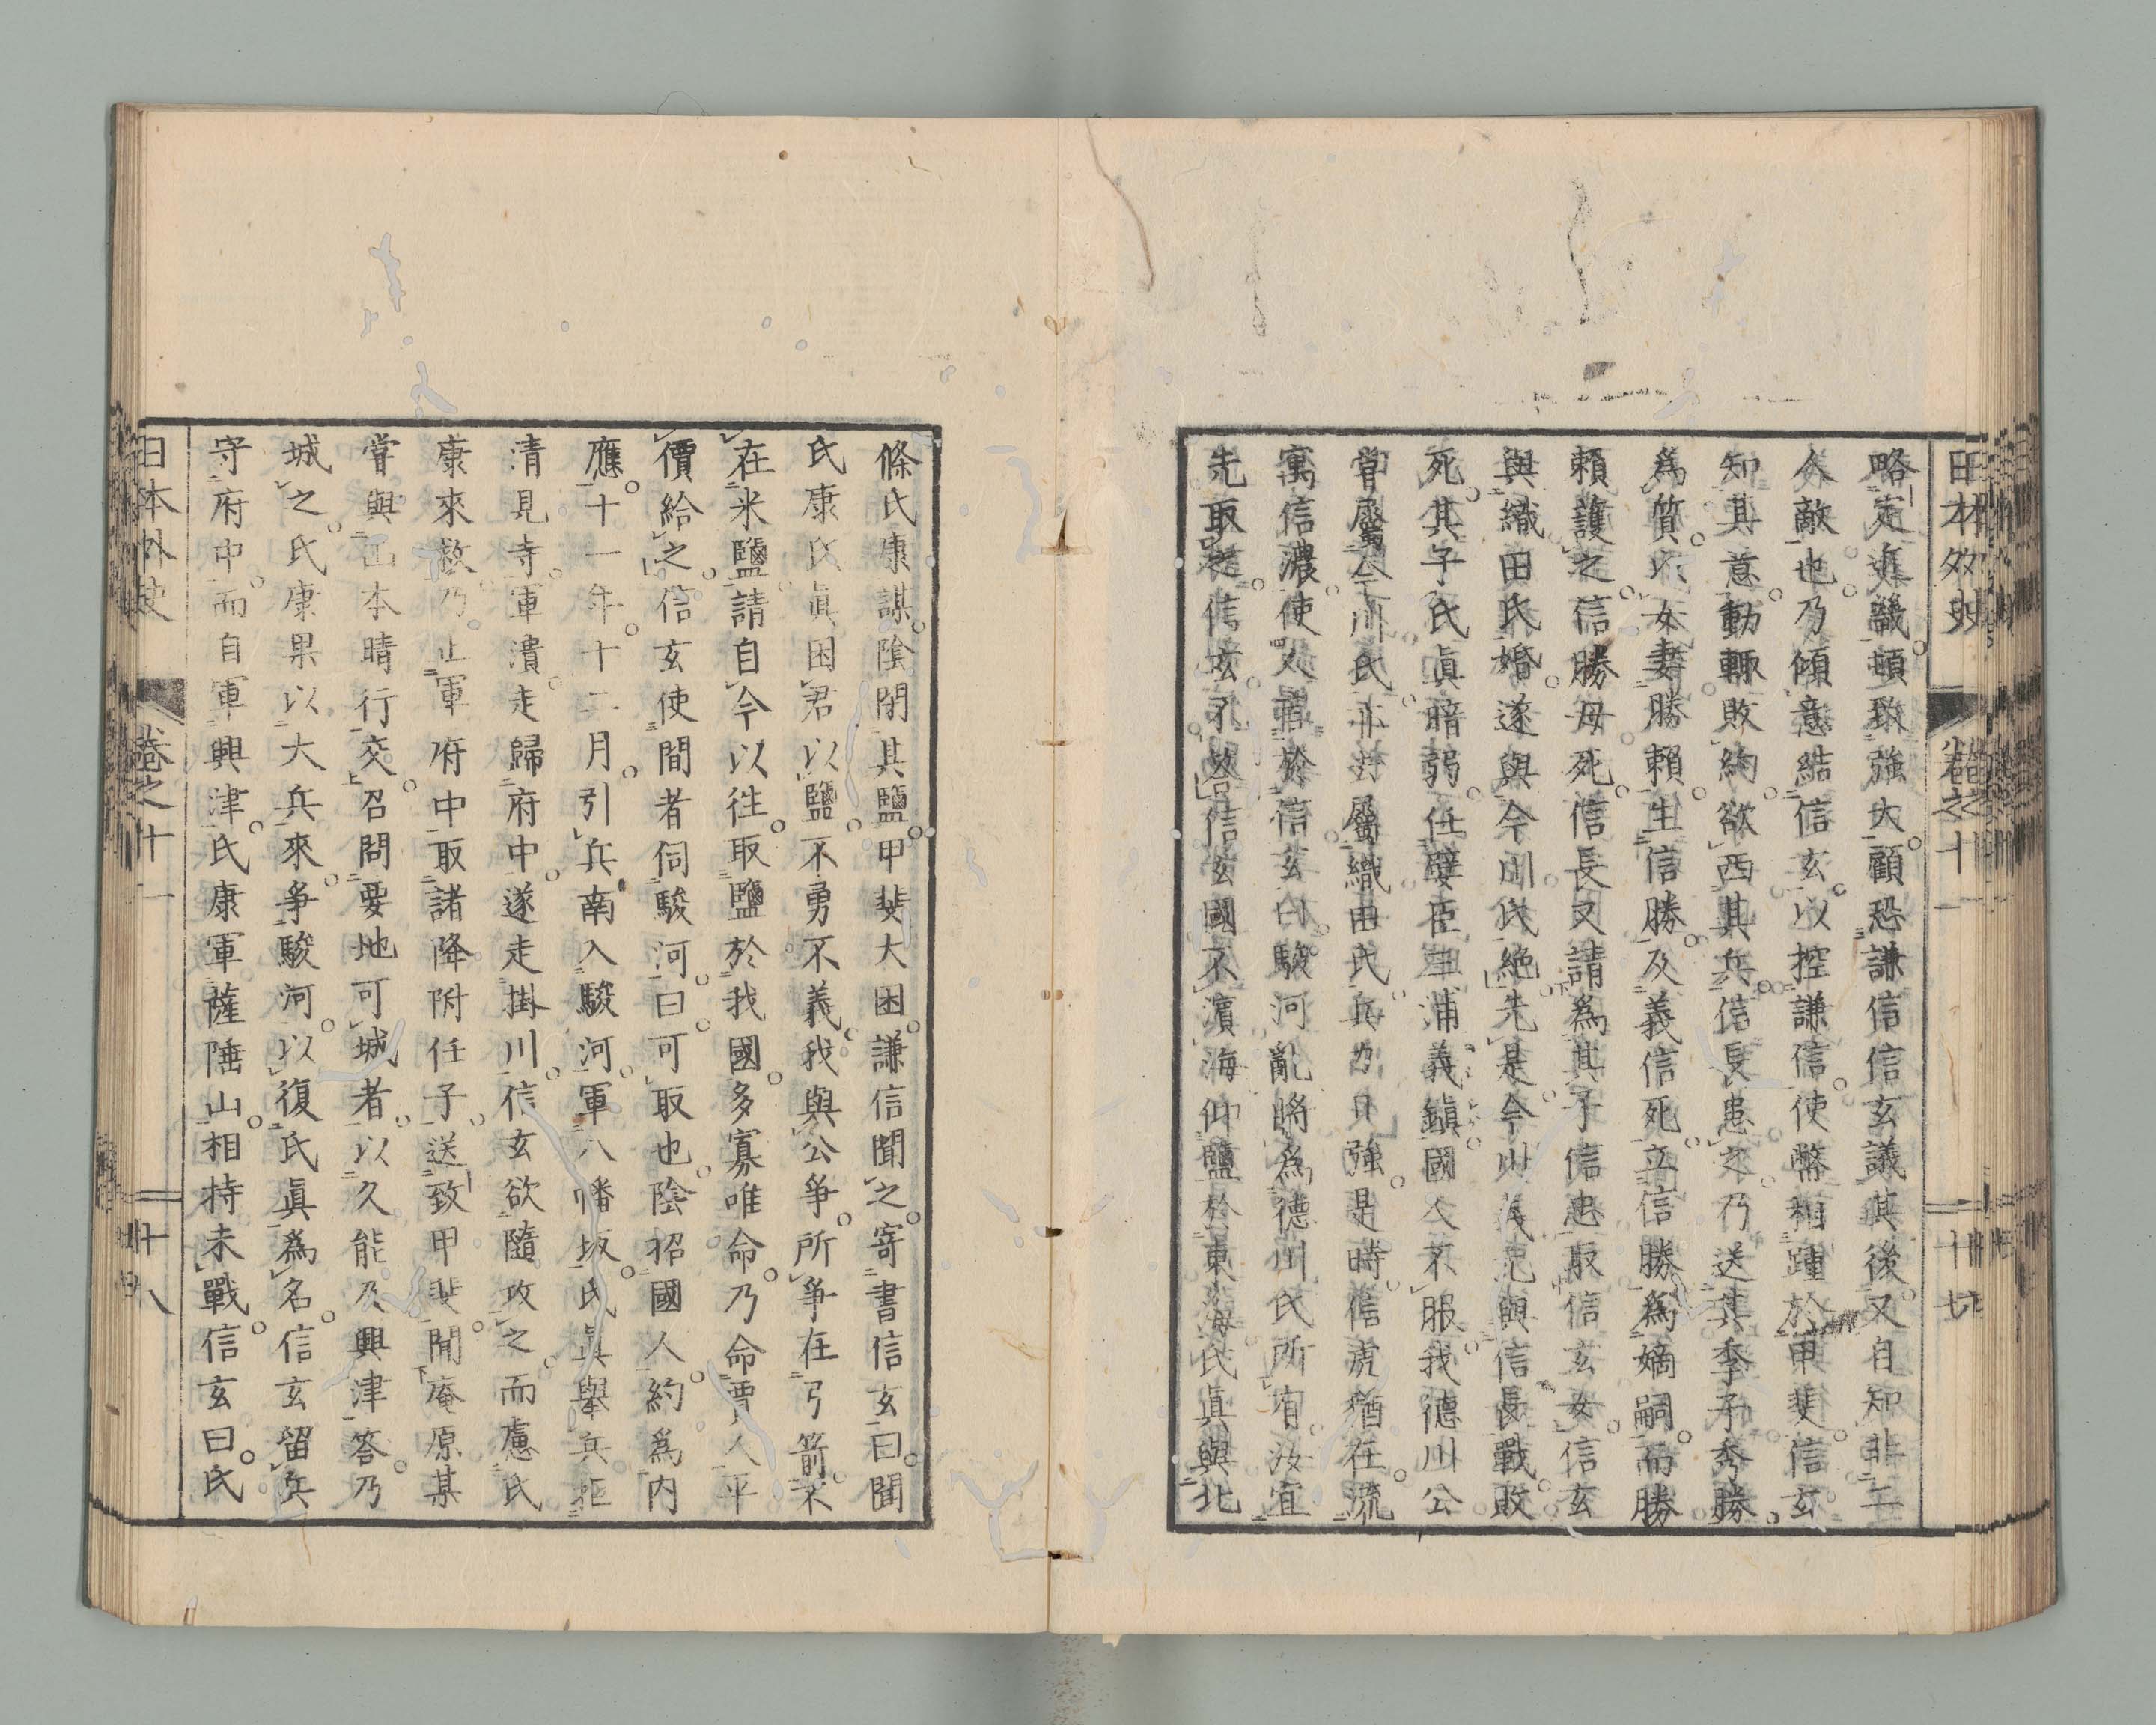 日本外史 卷之十一 十七
略定近畿頓致強大顧恐謙信信玄議其後又自知非二
人敵也乃傾意結信玄以控謙信使幣相踵於甲斐信玄
知其意動輒敗約欲西其兵信長患之乃送其季子秀勝
爲質以女妻勝賴生信勝及義信死立信勝爲嫡嗣而勝
賴護之信勝母死信長又請爲其子信忠取信玄女信玄
與織田氏婚遂與今川氏絶先是今川義元與信長戰敗
死其子氏眞暗弱任嬖臣三浦義鎭國人不服我德川公
嘗屬今川氏亦屬織田氏兵力日強是時信虎猶在流
寓信濃使人語於信玄曰駿河亂將爲德川氏所有汝宜
先取之信玄不答信玄國不濱海仰鹽於東海氏眞與北
條氏康謀陰閉其鹽甲斐大困謙信聞之寄書信玄曰聞
氏康氏眞困君以鹽不勇不義我與公爭所爭在弓箭不
在米鹽請自今以往取鹽於我國多寡唯命乃命賈人平
價給之信玄使間者伺駿河曰可取也陰招國人約爲内
應十一年十二月引兵南入駿河軍八幡坂氏眞舉兵拒
清見寺軍潰走歸府中遂走掛川信玄欲隨攻之而慮氏
康來救乃止軍府中取諸降附任子送致甲斐聞庵原某
嘗與山本晴行交召問要地可城者以久能及興津答乃
城之氏康果以大兵來爭駿河以復氏眞爲名信玄留兵
守府中而自軍興津氏康軍薩陲山相持未戰信玄曰氏
日本外史 卷之十一 十八